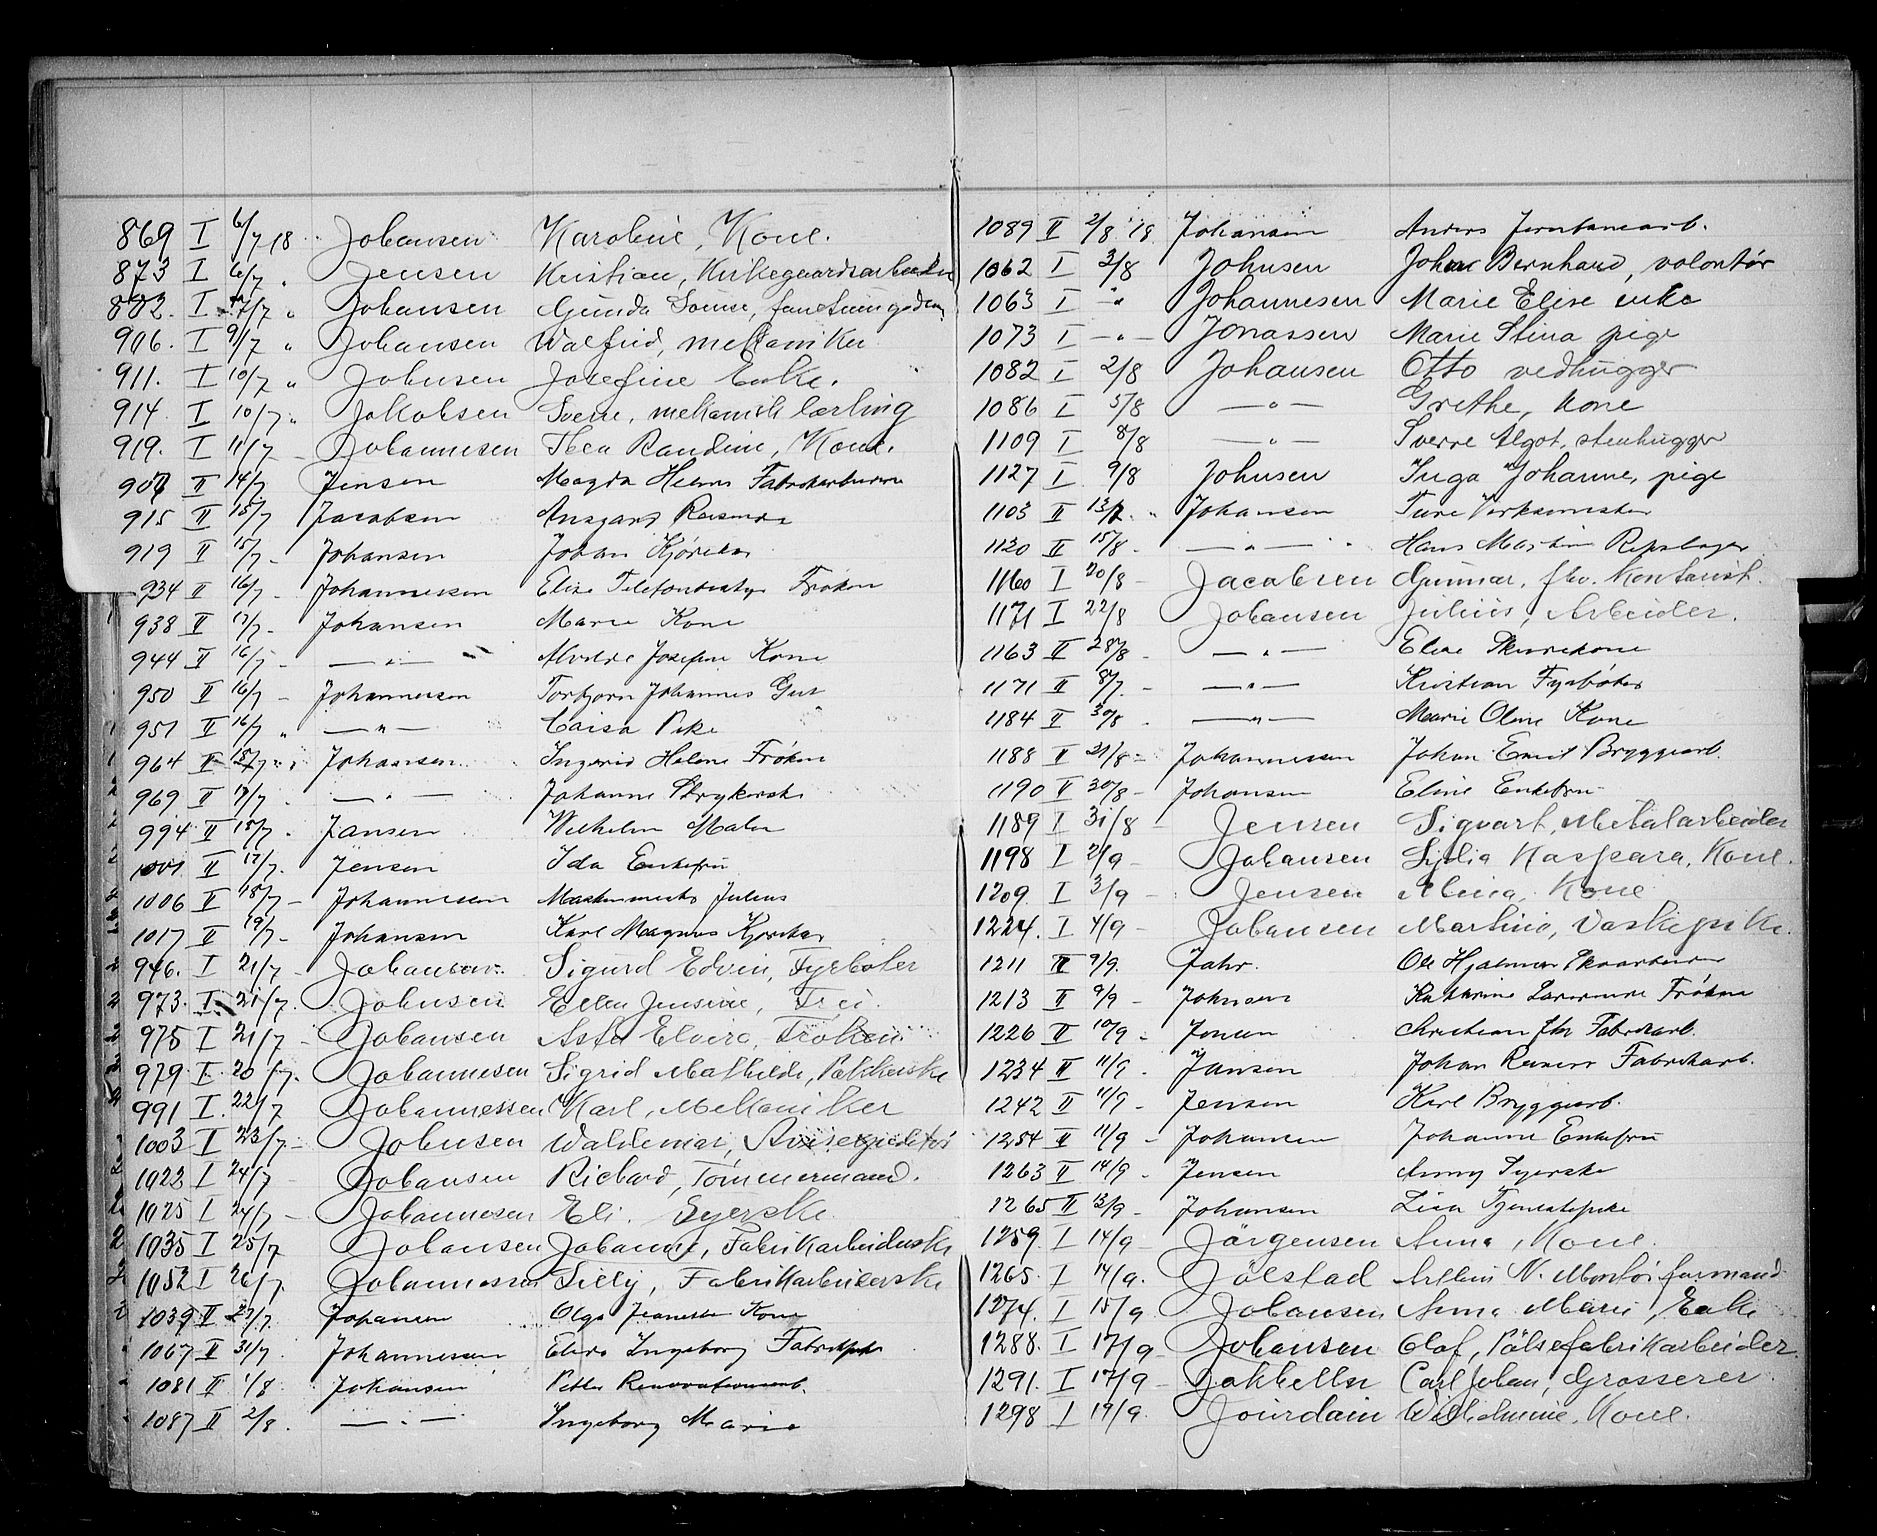 869 I 6/7 18 Johansen Karoline, Kone.
873 I 6/7 " Jensen Kristian, Kirkegaardsarbeider
882. I 7/7 " Johansen Gunda
906. I 9/7 " Johansen Walfrid, mekaniker
911. I 10/7 " Johnsen Josefine Enke.
914 I 10/7 " Jakobsen Sverre, mekanisk lærling
919. I 11/7 Johannesen Thea Randine, Kone.
907 II 14/7 Jensen Magda Helene Fabrikarbeider
915 II 15/7 Jacobsen Ansgard Reisende
919 II 15/7 Johansen Johan Kjørekar
934 II 16/7 - Johannessen Elise Telefonbestyr Frøken
938 II 17/7 - Johansen Marie Kone
944 II 16/7 - — " — Alvilde Josefine Kone
950 II 16/7 - Johannessen Torbjørn Johannes Gut
951 II 16/7 " — " — Caisa Pike
964 II 18/7 Johansen Ingerid Helene Frøken
969 II 18/7 — " — Johanne Strykerske
994 II 18/7 Jansen Wilhelm Maler
1001 II 17/7 Jensen Ida Enkefru
1006 II 18/7 - Johannesen Maskinmester Julius
1017 II 19/7 - Johansen Karl Magnus Kjørekar
946. I 21/7 - Johansen Sigurd Edvin, Fyrbøter
973. I 21/7 Johnsen Ellen Jensine, Frøi.
975 I 21/7 - Johansen Asta Elvira, Frøken.
979 I 20/7 Johannesen Sigrid Mathilde,
991 I 22/7 Johannessen Karl, Mekaniker
1003 I 23/7 - Johnsen Waldemar, Avisexpeditør
1023 I 24/7 Johansen Richard, Tømmermand.
1025 I 24/7 - Johannesen Eli. Syerske
1035 I 25/7 Johansen Johanne, Fabrikarbeiderske
1052 I 26/7 Johannessen Silly, Fabrikarbeiderske
1039 II 27/7 Johansen Olga Jeanette Kone
1067 II 31/7 Johannessen Elida Ingeborg Fabrikpike
1081 II 1/8 Johansen Petter Renovationsarb.
1087 II 2/8 — " — Ingeborg Marie
1089 II 2/8 18 Johansen Anders Jernbanearb.
1062 I 3/8 Johnsen Johan Bernhard, volontør
1063 I - " Johannesen Marie Elise enke
1073 I — " — Jonassen Marie Stina pige
1082 I 2/8 Johansen Otto vedhugger
1086 I 5/8 — " — Grethe, kone
1109 I 8/8 — " — Sverre Algot, stenhugger
1127 I 9/8 Johnsen Inga Johanne, pige
1103 II 13/7 " Johansen Ture Verksmester
1120 II 15/8 - — " — Hans Martin Repslager
1160 I 20/8 - Jacobsen Gunnar, fhv. Kontorist.
1171 I 22/8 Johansen Julius, Arbeider.
1163 II 28/8 - — " — Elise Skurekone
1171 II 8/7 - — " — Kristian Fyrbøter
1184 II 30/8 — " — Marie Oline Kone
1188 II 31/8 - Johannessen Johan Ernst Bryggearb.
1190 II 30/8 - Johansen Eline Enkefru
1189 I 31/8 - Jensen Sigvart, Metalarbeider
1198 I 2/9 - Johansen Lydia Kaspara, Kone.
1209. I 3/9 - Jensen Alma, Kone
1224. I 4/9 - Johansen Martine, Vaskepike.
1211 II 9/9. Jahr. Ole Hjalmar Skoarbeider
1213 II 9/9 - Johnsen Katharine Frøken
1226 II 10/9 - Jensen Christian Fabrikarb.
1234 II 11/9 Jansen Johan Fabrikarb.
1242 II 11/9 - Jensen Karl Bryggearb.
1254 II 11/9 - Johansen Johanne Enkefru
1263 II 14/9 - Jensen Anny Syerske
1265 II 13/9 - Johansen Lisa Tjenestepike
1259. I 14/9 - Jørgensen Anna, Kone.
1265. I 14/9. Jølstad Arthur N. Montørformand
1274. I 15/9 Johansen Anna Marie, Enke
1288. I 17/9 - Johansen Olaf, Pølsefabrikarbeider.
1291. I 17/9 - Jakhelln Carl Johan, Grosserer
1298 I 19/9. Jourdain Wilhelmine, Kone.